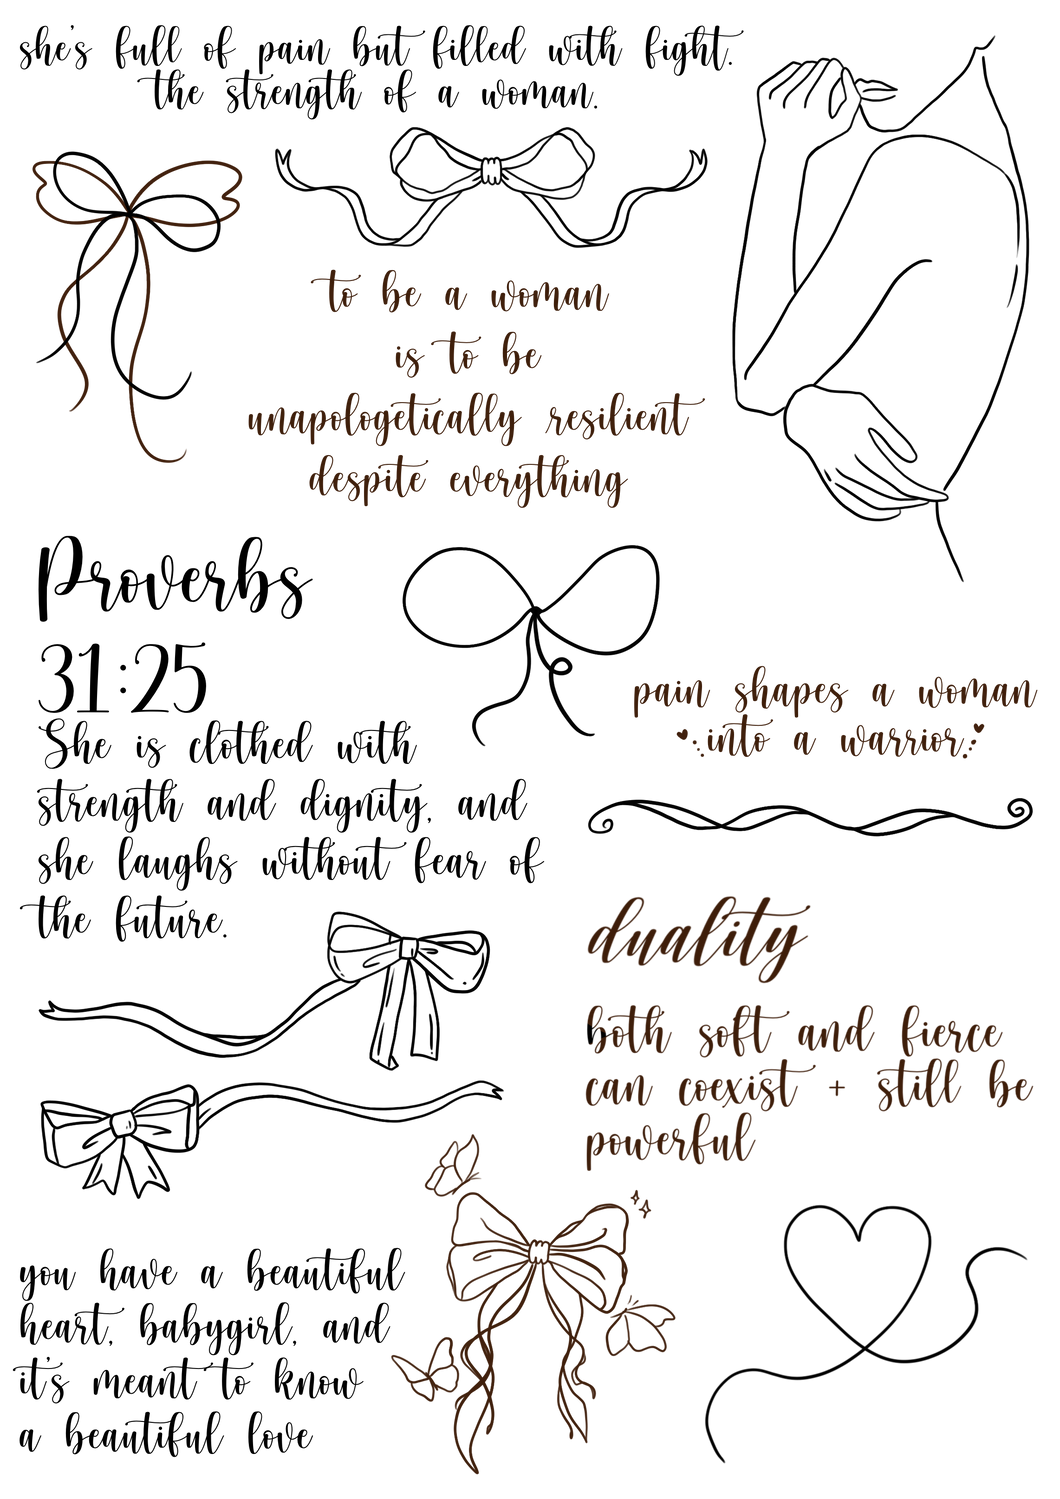 she's full of pain but filled with fight.
the strength of a woman.
to be a woman
is to be
unapologetically resilient
despite everything
Proverbs
31:25
She is clothed with
strength and dignity, and
she laughs without fear of
the future.
pain shapes a woman
into a warrior.
duality
both soft and fierce
can coexist + still be
powerful
you have a beautiful
heart, babygirl, and
it's meant to know
a beautiful love